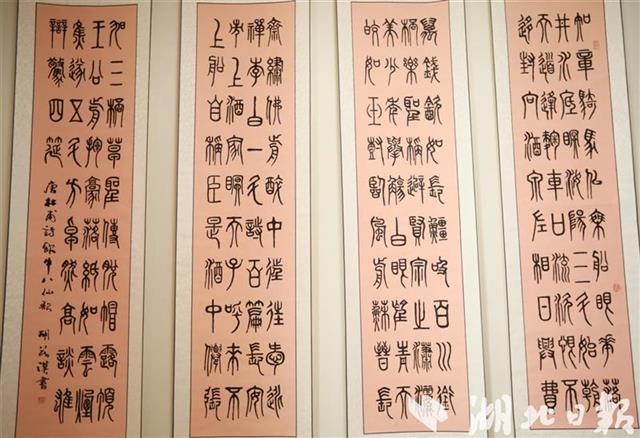 知章騎馬似乘船眼花落
井水底眠汝陽三斗始朝
天道逢麴車口流涎恨不
移封向酒泉左相日興費
萬錢飲如長鯨吸百川銜
杯樂聖稱避賢宗之瀟灑
美少年舉觴白眼望青天
皎如玉樹臨風前蘇晉長
齋繡佛前醉中往往愛逃
禪李白一斗詩百篇長安
市上酒家眠天子呼來不
上船自稱臣是酒中仙張
旭三杯草聖傳脫帽露頂
王公前揮毫落紙如雲煙
焦遂五斗方卓然高談雄
辯驚四筵
唐杜甫詩飲中八仙歌 書
湖北日报